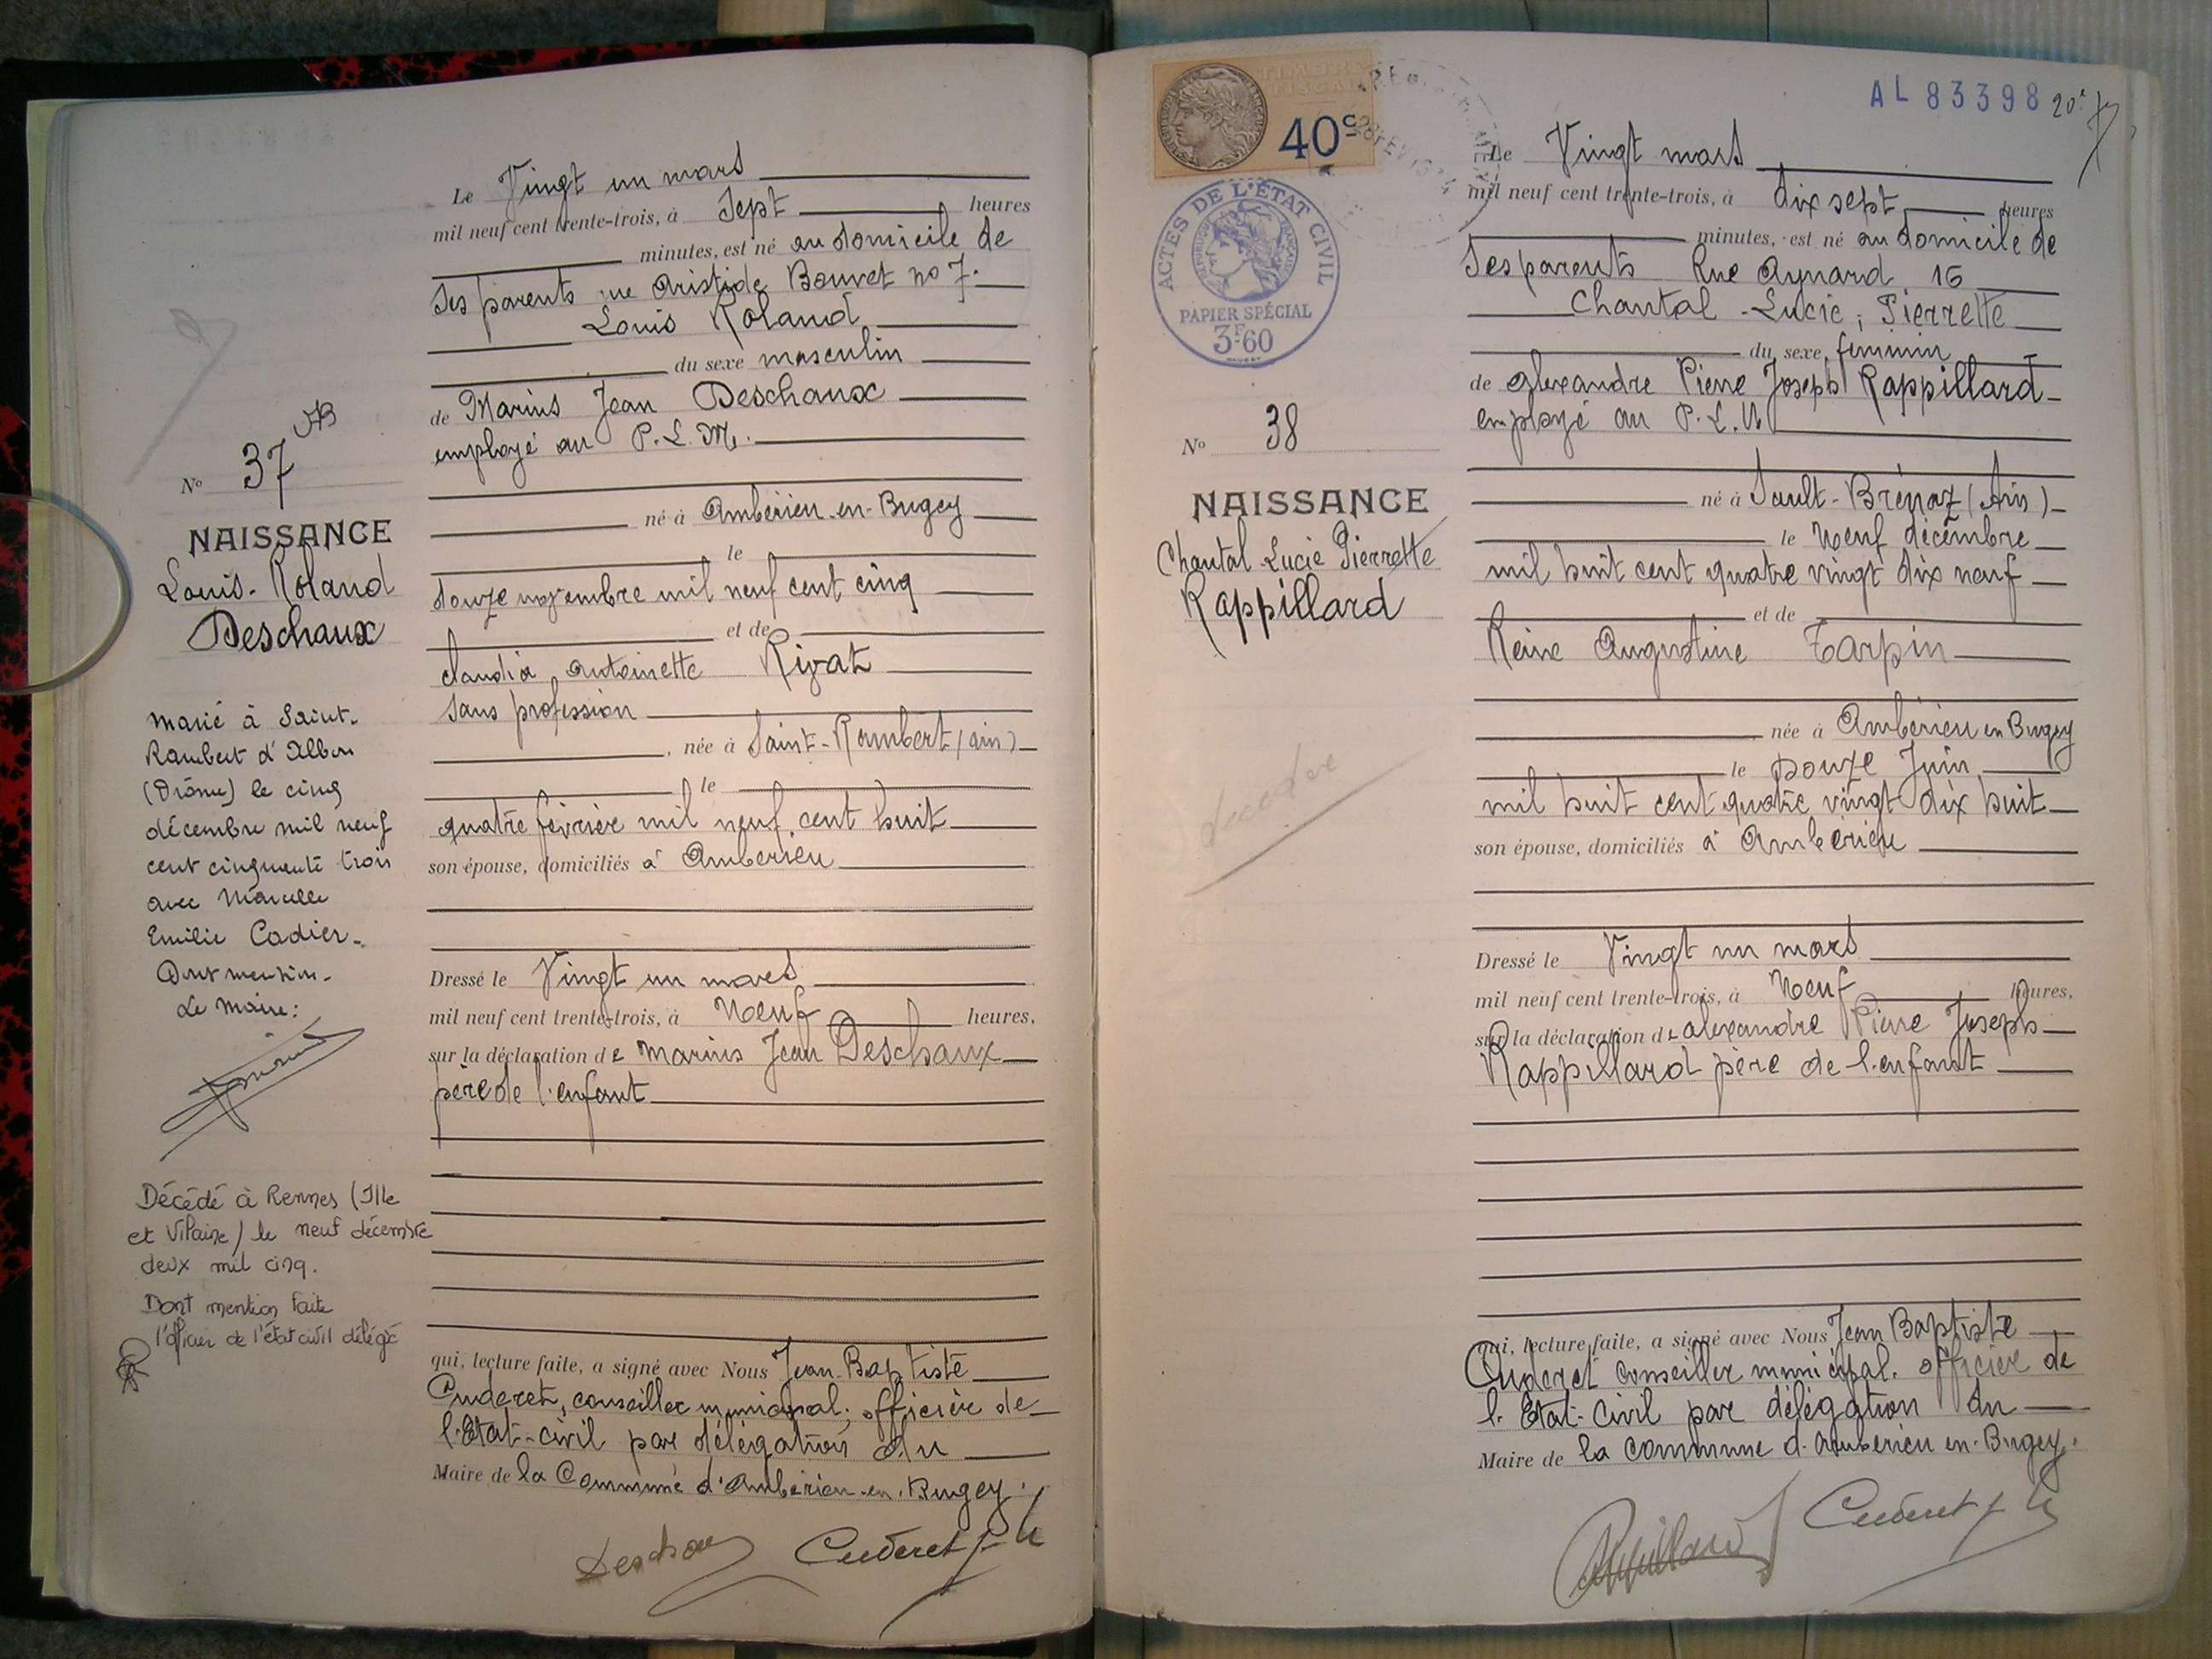 Le Vingt un mars
mil neuf cent trente-trois, à Sept heures
minutes, est né au domicile de
Ses parents rue Aristide Bouvet no 7.
Louis Roland
du sexe masculin
de Marius Jean Deschaux
employé au P.L.M.
né à Ambérieu-en-Bugey
le
douze novembre mil neuf cent cinq
et de
Claudia Antoinette Rivat
Sans profession
, née à Saint-Rambert (Ain)
le
quatre février mil neuf cent huit
son épouse, domiciliés à Ambérieu
Dressé le Vingt un mars
mil neuf cent trente-trois, à Neuf heures,
sur la déclaration de Marius Jean Deschaux
père de l'enfant
qui, lecture faite, a signé avec Nous Jean Baptiste
Cuderet, conseiller municipal, officier de
l'Etat-civil par délégation du
Maire de la Commune d'Ambérieu-en-Bugey.
Deschaux Cuderet
No 37
NAISSANCE
Louis-Roland
Deschaux
Marié à Saint-
Rambert d'Albon
(Drôme) le cinq
décembre mil neuf
cent cinquante trois
avec Marcelle
Emilie Cadier.
Dont mention.
Le Maire:
Décédé à Rennes (Ille
et Vilaine) le neuf décembre
deux mil cinq.
Dont mention faite
l'officier de l'état civil délégué
TIMBRE
FISCAL
40c
ACTES DE L'ÉTAT CIVIL
PAPIER SPÉCIAL
3F60
AL 83398
No 38
NAISSANCE
Chantal-Lucie Pierrette
Rappillard
Le Vingt mars
mil neuf cent trente-trois, à dix sept heures
minutes, est né au domicile de
Ses parents Rue Aynard 16
Chantal-Lucie, Pierrette
du sexe feminin
de Alexandre Pierre Joseph Rappillard
employé au P.L.M
né à Sault-Brénaz (Ain)
le Neuf décembre
mil huit cent quatre vingt dix neuf
et de
Reine Augustine Tarpin
née à Ambérieu en Bugey
le Douze Juin
mil huit cent quatre vingt dix huit
son épouse, domiciliés à Ambérieu
Dressé le Vingt un mars
mil neuf cent trente-trois, à Neuf heures,
sur la déclaration de Alexandre Pierre Joseph
Rappillard père de l'enfant
qui, lecture faite, a signé avec Nous Jean Baptiste
Cuderet conseiller municipal. officier de
l'Etat-Civil par délégation du
Maire de la commune d'Ambérieu-en-Bugey.
Rappillard Cuderet